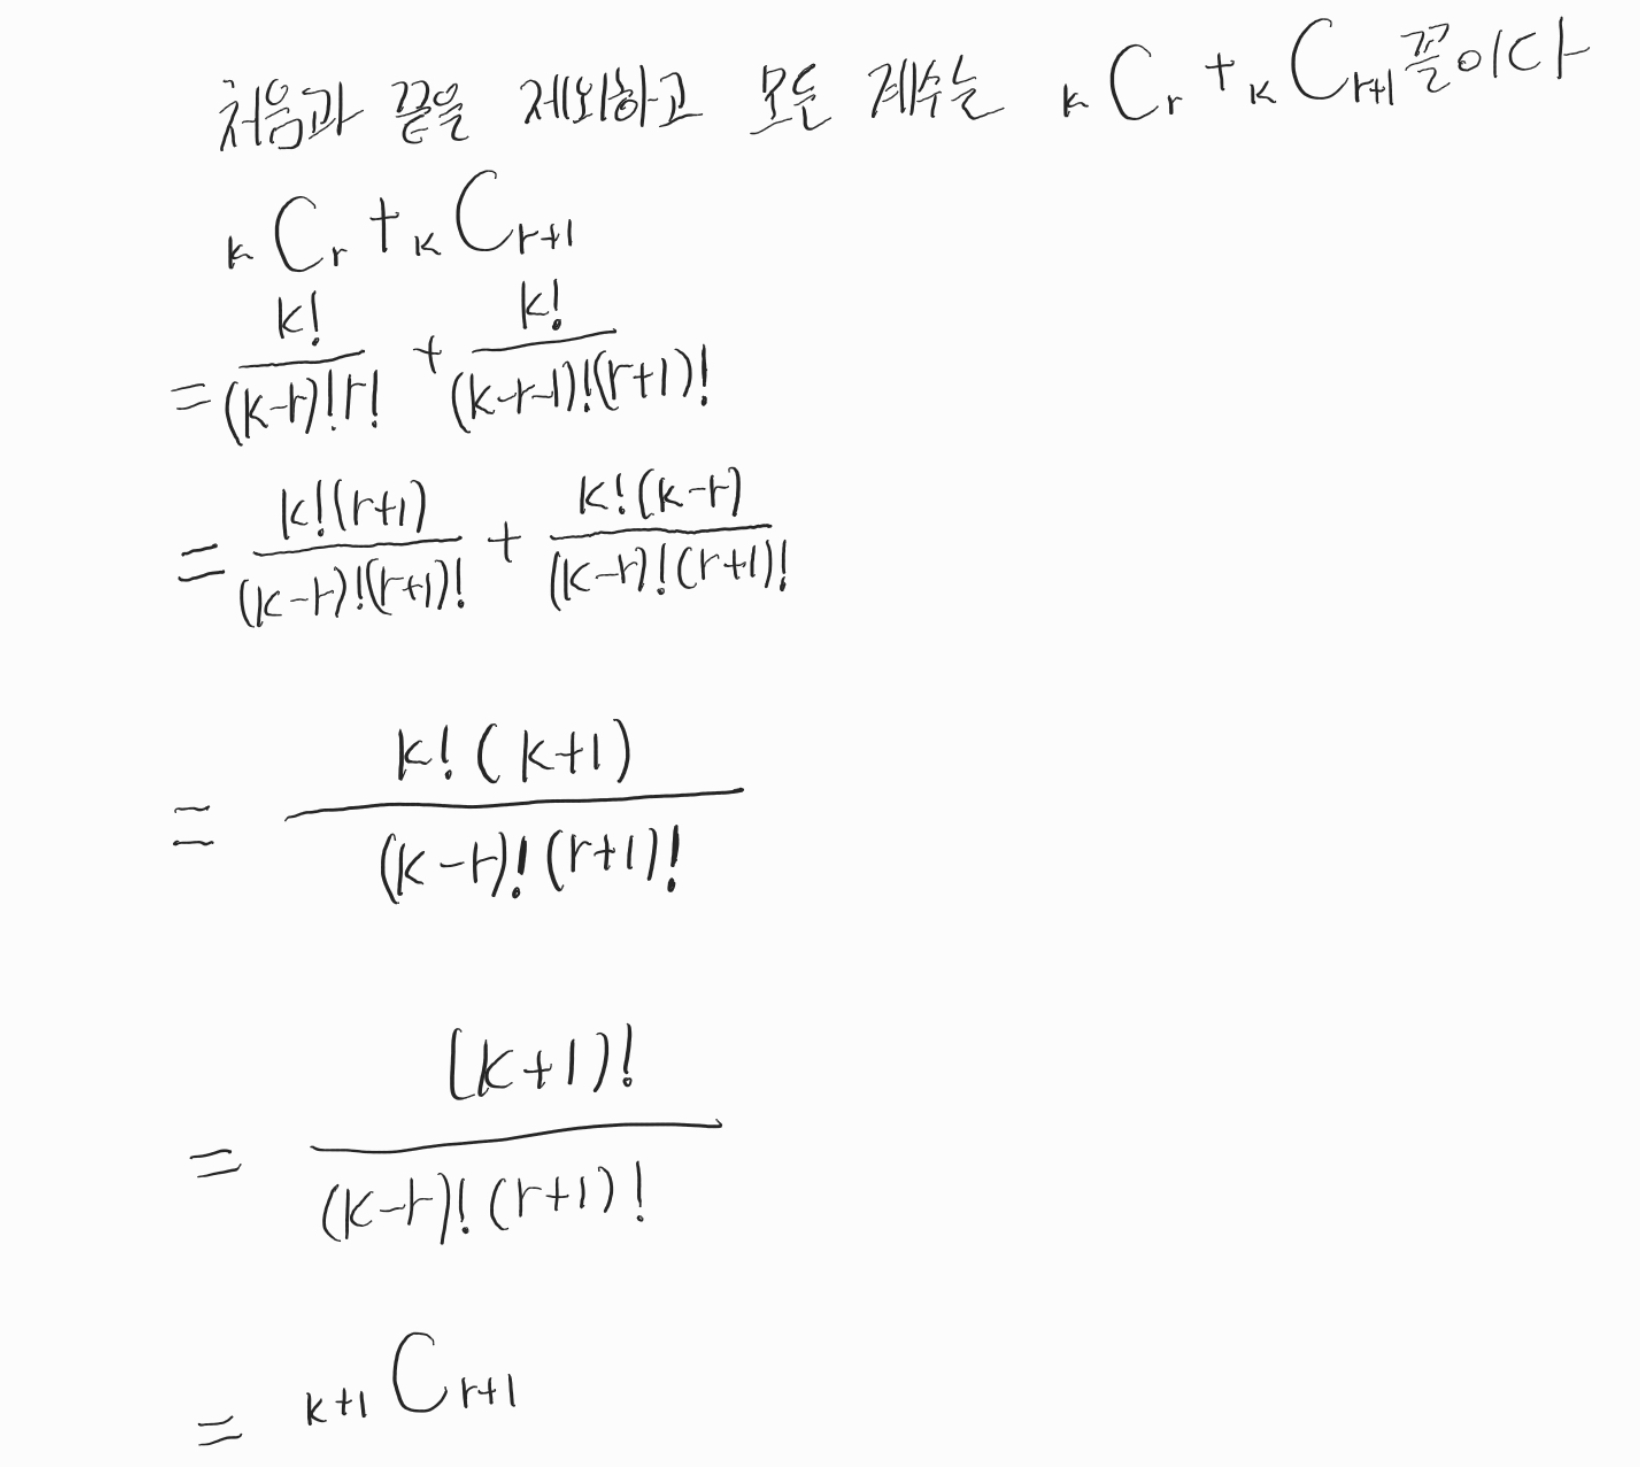 처음과 끝을 제외하고 모든 계수는 ₖCᵣ + ₖCᵣ₊₁ 꼴이다
ₖCᵣ + ₖCᵣ₊₁
= k!/((k-r)!r!) + k!/((k-r-1)!(r+1)!)
= k!(r+1)/((k-r)!(r+1)!) + k!(k-r)/((k-r)!(r+1)!)
= k!(k+1)/((k-r)!(r+1)!)
= (k+1)!/((k-r)!(r+1)!)
= ₖ₊₁Cᵣ₊₁